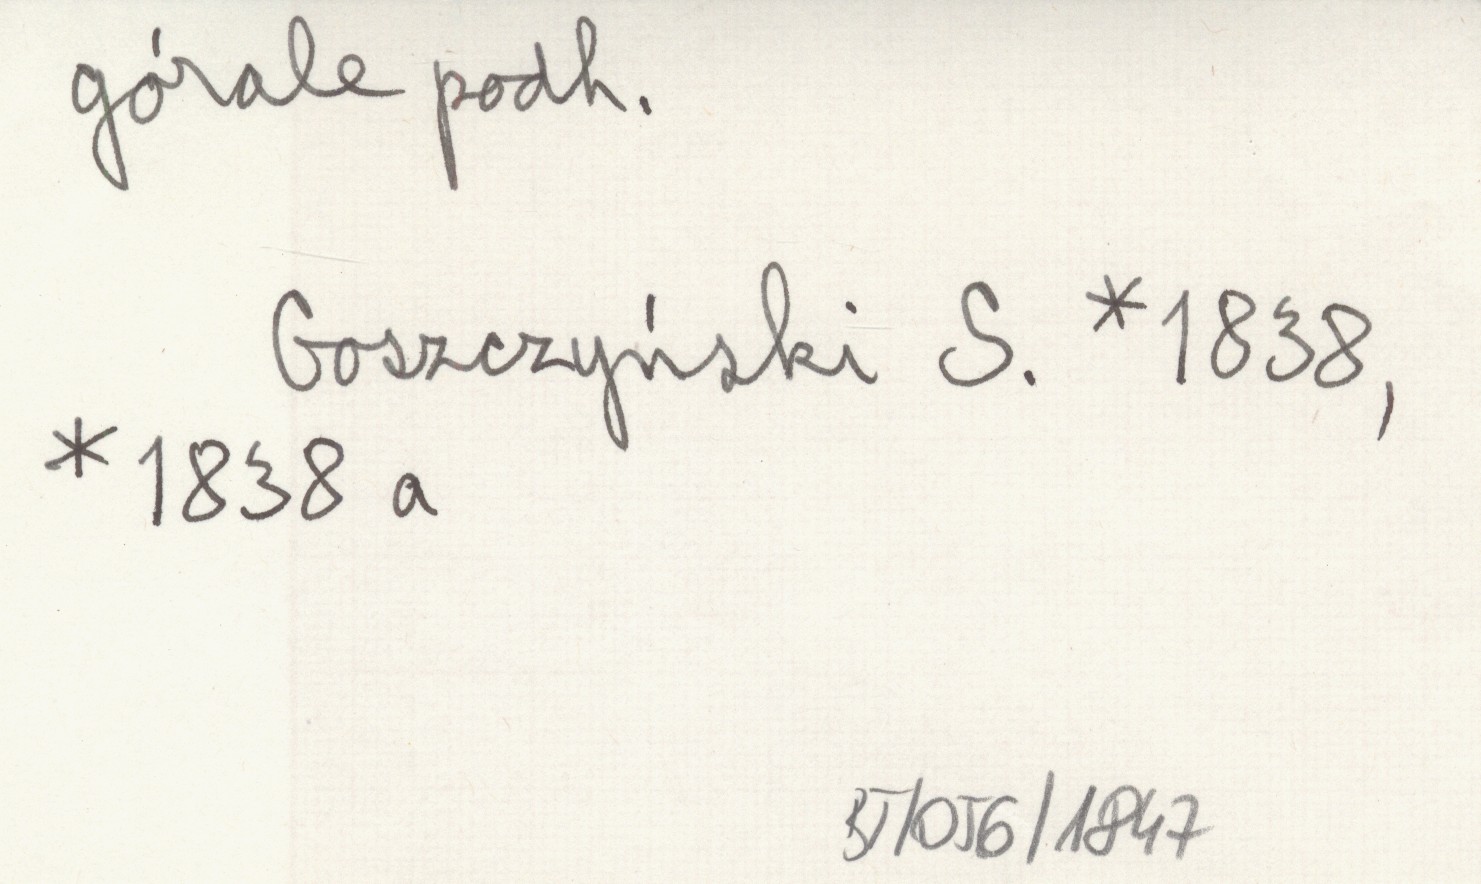 górale podh.
Goszczyński S. *1838,
*1838 a
BJ/OJG/1847